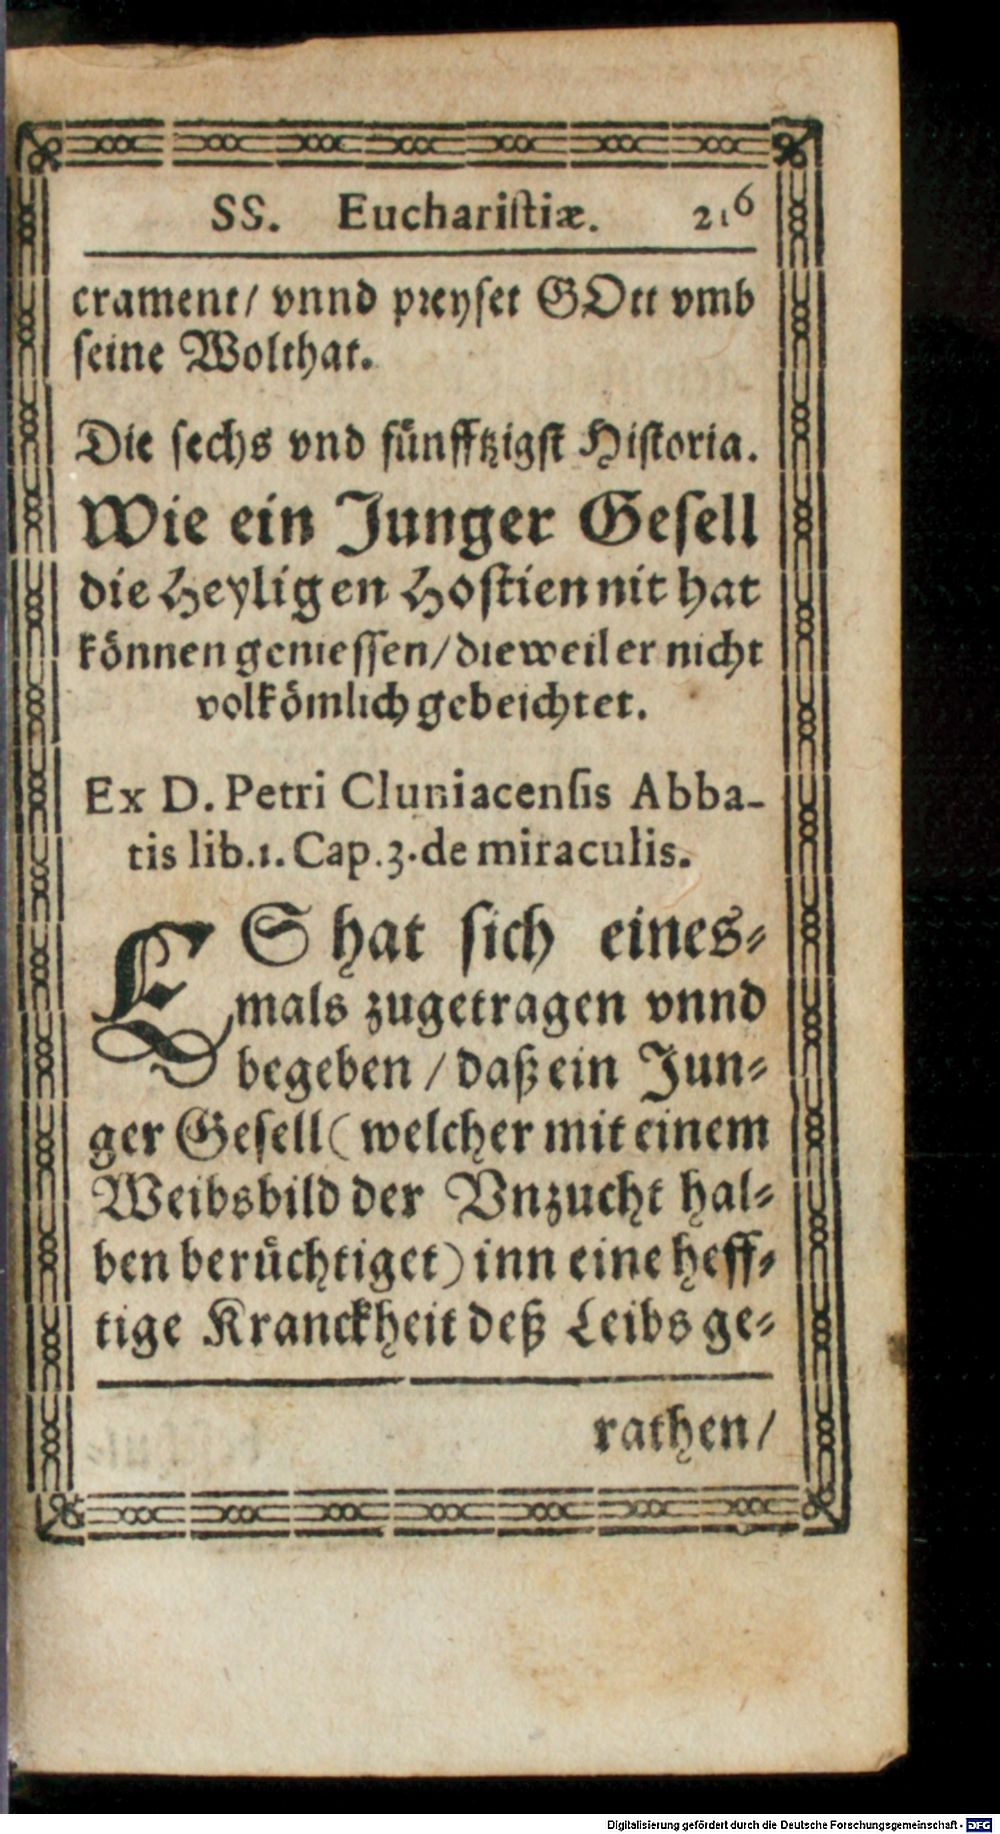 SS. Euchariſtiæ. 216
crament/ vnnd preyſet GOtt vmb
ſeine Wolthat.
Die ſechs vnd fuͤnfftzigſt Hiſtoria.
Wie ein Junger Geſell
die Heyligen Hoſtien nit hat
koͤnnen genieſſen/ dieweil er nicht
volkoͤmlich gebeichtet.
Ex D. Petri Cluniacenſis Abba-
tis lib.1. Cap.3. de miraculis.
ES hat ſich eines⸗
mals zugetragen vnnd
begeben / daß ein Jun⸗
ger Geſell (welcher mit einem
Weibsbild der Vnzucht hal⸗
ben beruͤchtiget) inn eine heff⸗
tige Kranckheit deß Leibs ge⸗
rathen/
Digitalisierung gefördert durch die Deutsche Forschungsgemeinschaft - DFG